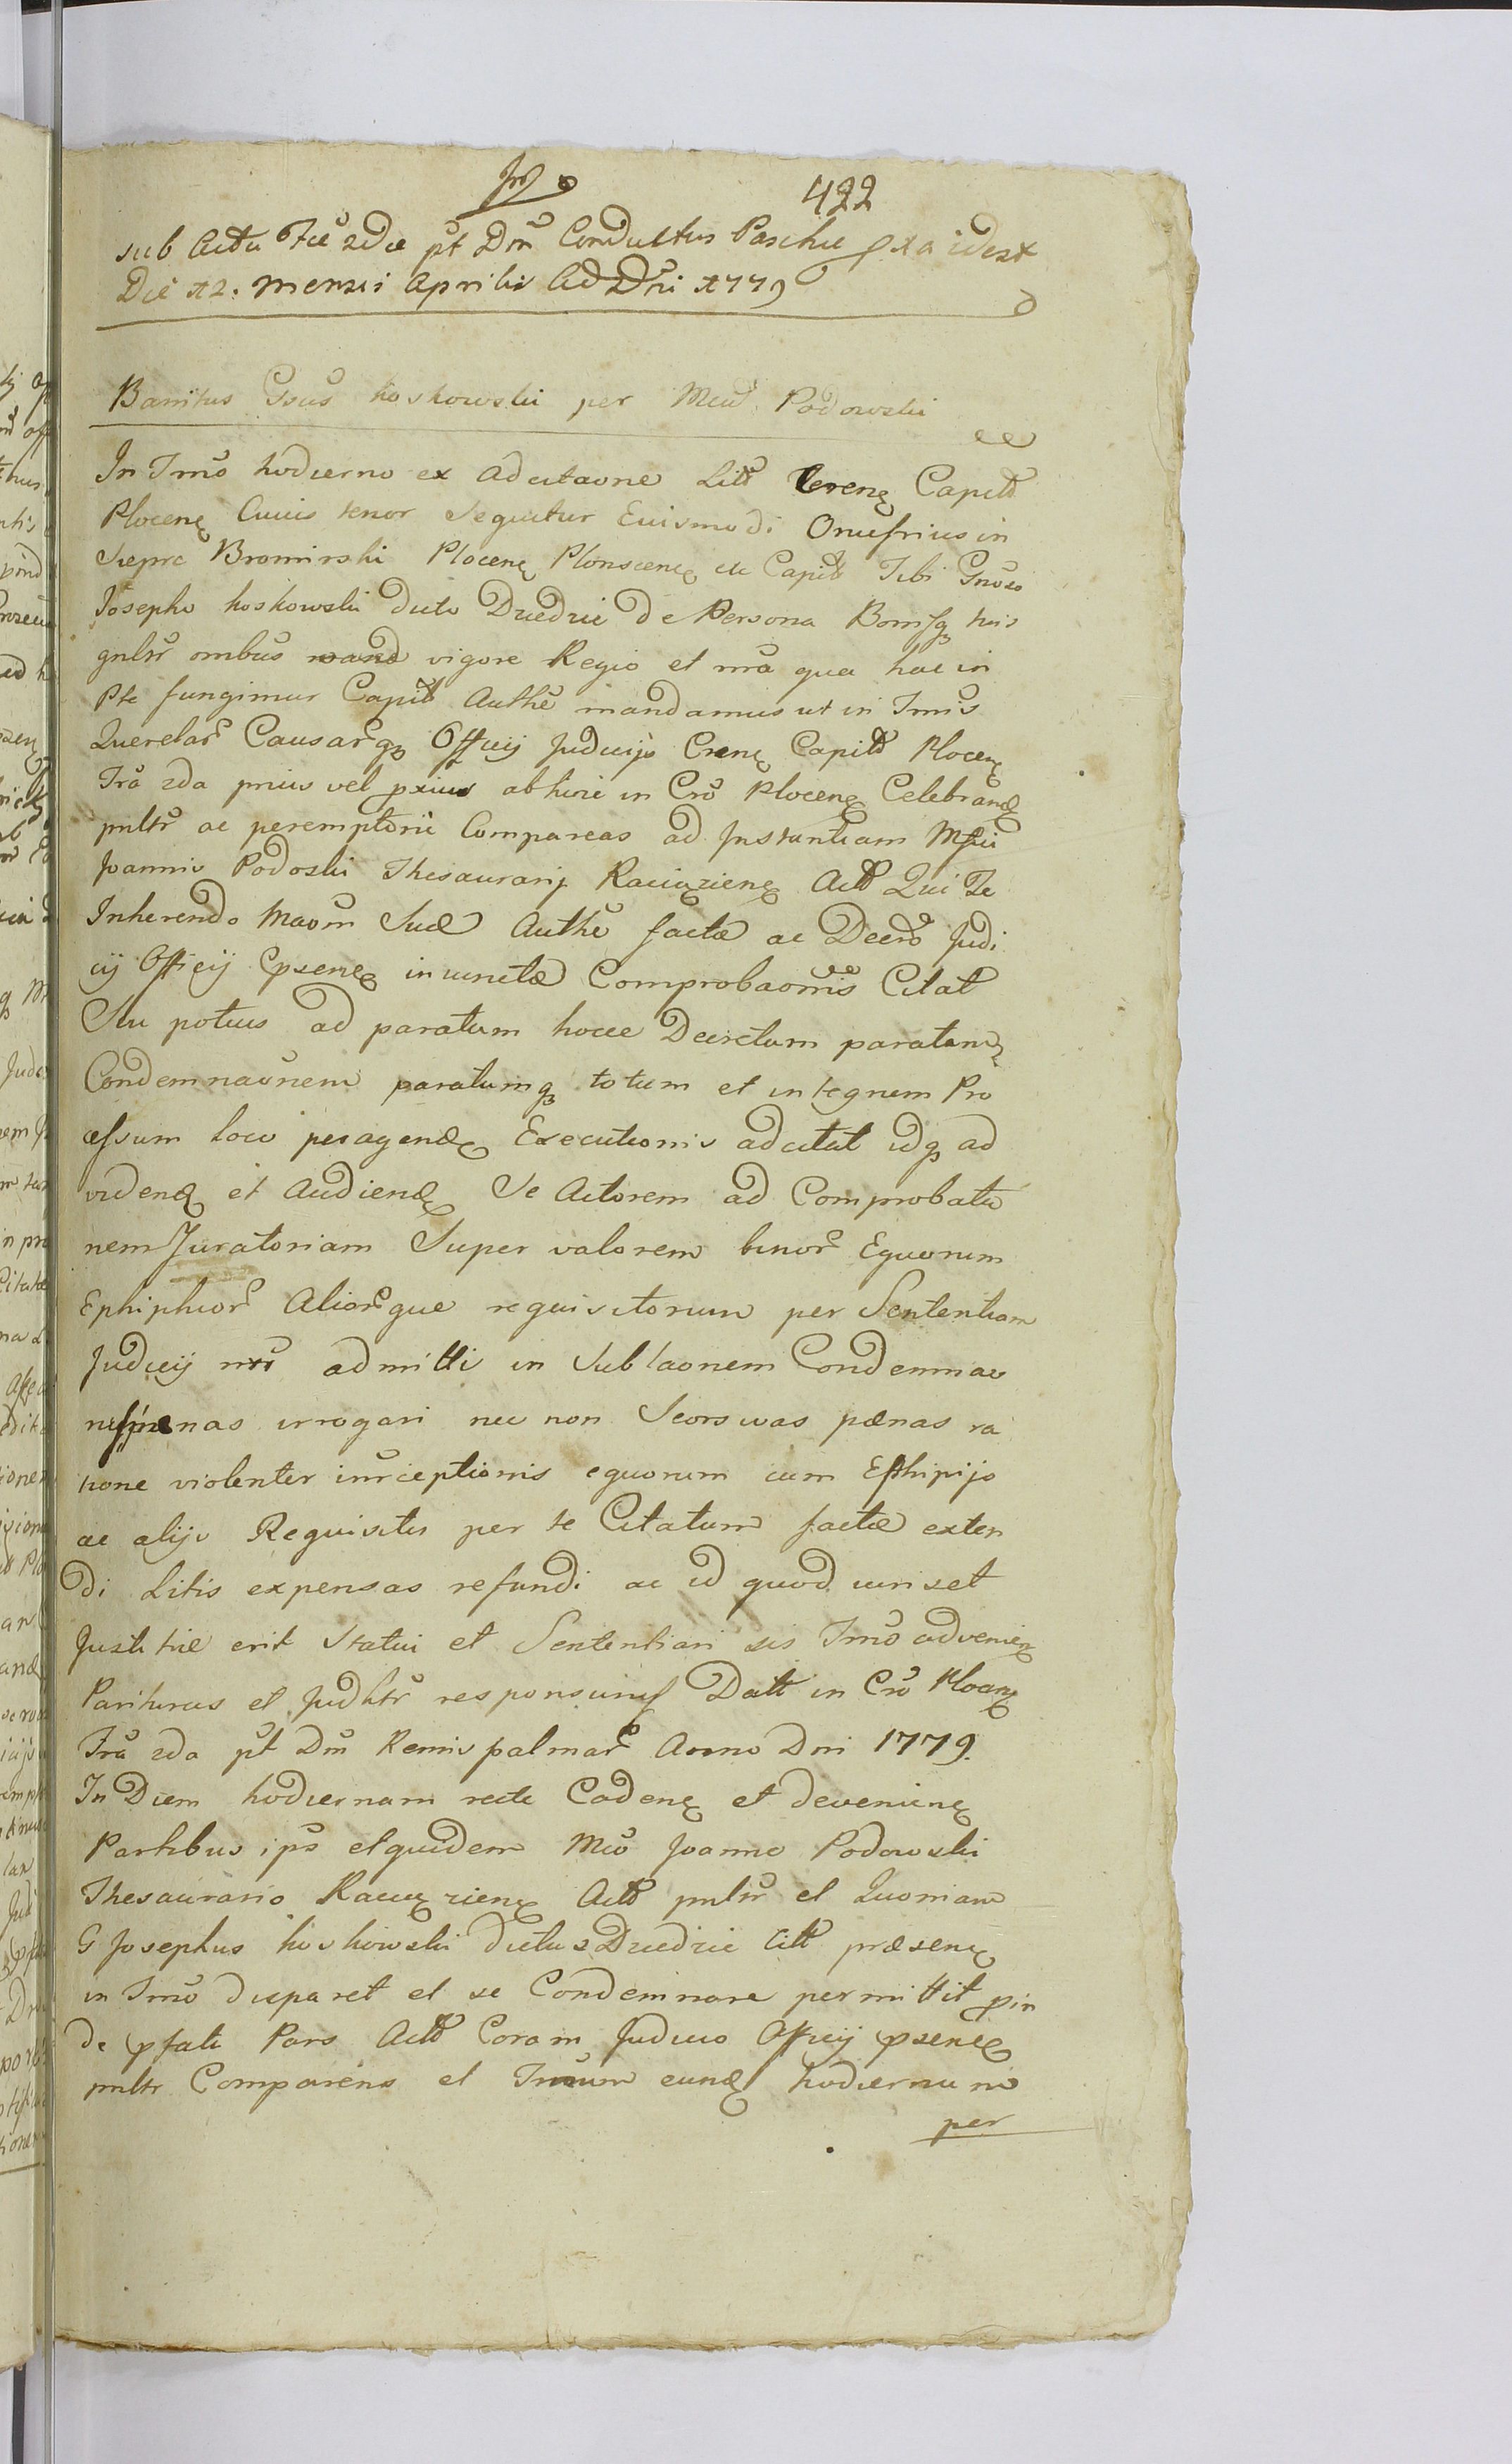 422
sub Actu Fiẽ 2dæ pt Dm̃ Conductus Paschæ pxa idest
Die 12. mensis Aprilis Ad Dñi 1779
Banitus Gsus Koskowski per Mcũ Podowski
In Tmõ hodierno ex adcitaone Litt Crens Capitt
Plocens Cuius tenor sequitur Eiusmodi Onufrius in
Sieprc Bromirski Plocens Plonscens etc Capitt Tibi Gnõso
Josepho Koskowski dicto Dziedzic de Persona Bonisq tuis
gnltr ombus mand vigore Regio et nrã qua hac in
Pte fungimur Capit Authẽ mandamus ut in Tmis
Querelar Causarq Officij Judicijs Crens Capitt Plocens
Frã 2da prius vel pxius abhinc in Crõ Plocens Celebrand
pnltr ac peremptorie Compareas ad Instantiam Mfici
Joannis Podoski Thesaurarij Raciąziens Act Qui Te
Inherendo Maom̃ Suæ Authẽ factæ ac Decrõ Judi
cij Officij psens iniunctæ Comprobaonis Citat
Seu potius ad paratum hocce Decretum paratam
Condemnaonem paratumq totum et integrum Pro
cessum loco peragend Executionis adcitat idq ad
vidend et Audiend Se Actorem ad Comprobatio
nem Juratoriam Super valorem binor Equorum
Ephiphior Aliorque requisitorum per Sententiam
Judicij nri admitti in Sublaonem Condemnao
nis pænas irrogari nec non Seorsivas pænas ra
tione violenter inrceptionis equorum cum Ephipijs
ac alijs Requisitis per te Citatum factæ exten
di Litis expensas refundi ac id quod iuris et
Justitiæ erit Statui et Sententiari sis Tmõ adveniens
Pariturus et Judltr responsurus Datt in Crõ Plocens
Frã 2da pt Dm̃ Ramis palmar Anno Dni 1779.
In Diem hodiernam recte Cadens et deveniens
Partibus ips et quidem Mcõ Joanne Podowski
Thesaurario Raciąziens Act pnltr et Quoniam
G Josephus Koskowski dictus Dziedzic Citt præsens
in Tmõ disparet et se Condemnare permittit pin
de pfati Pars Act Coram Judicio Officij psens
pnltr Comparens et Tmum eund hodiernum
per